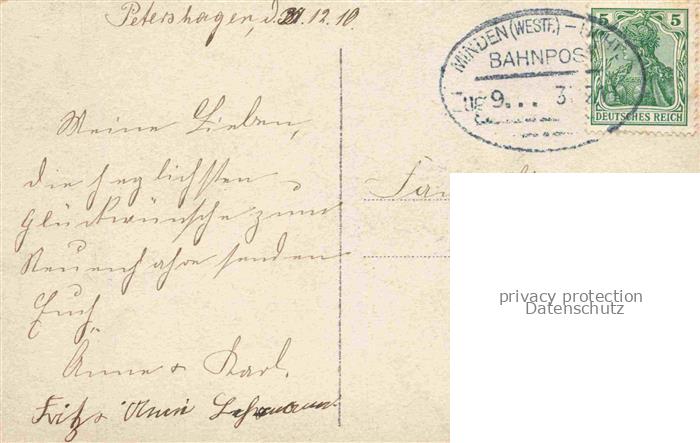 Petershagen, d. 31.12.10
MINDEN (WESTF.) –
BAHNPOST
Zug 9... 31
5 5
DEUTSCHES REICH
Meine Lieben,
die herzlichsten
Glückwünsche zum
Neuenjahre senden
Euch
Anne & Karl.
Fritz & Lehmann
privacy protection
Datenschutz